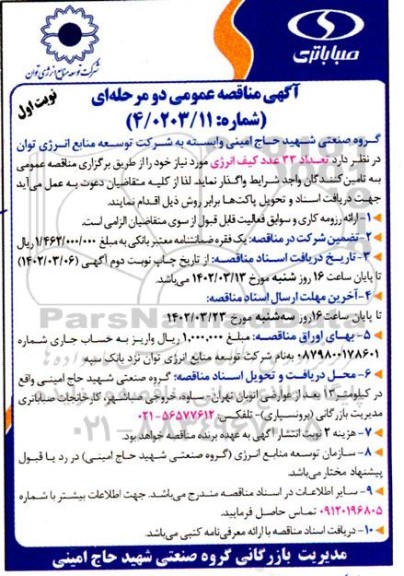 شرکت توسعه منابع انرژی توان
صباباتری
نوبت اول
آگهی مناقصه عمومی دو مرحله‌ای
(شماره: ۴/۰۲۰۳/۱۱)
گروه صنعتی شهید حاج امینی وابسته به شرکت توسعه منابع انرژی توان
در نظر دارد تعداد ۳۳ عدد کیف انرژی مورد نیاز خود را از طریق برگزاری مناقصه عمومی
به تامین کنندگان واجد شرایط واگذار نماید، لذا از کلیه متقاضیان دعوت به عمل می‌آید
جهت دریافت اسناد و تحویل پاکت‌ها برابر روش ذیل اقدام نمایند.
۱- ارائه رزومه کاری و سوابق فعالیت قابل قبول از سوی متقاضیان الزامی است.
۲- تضمین شرکت در مناقصه: یک فقره ضمانتنامه معتبر بانکی به مبلغ ۱/۴۶۲/۰۰۰/۰۰۰ ریال
۳- تاریخ دریافت اسناد مناقصه: از تاریخ چاپ نوبت دوم آگهی (۱۴۰۲/۰۳/۰۶)
تا پایان ساعت ۱۶ روز شنبه مورخ ۱۴۰۲/۰۳/۱۳ می‌باشد.
۴- آخرین مهلت ارسال اسناد مناقصه:
تا پایان ساعت ۱۶ روز سه‌شنبه مورخ ۱۴۰۲/۰۳/۲۳
۵- بهای اوراق مناقصه: مبلغ ۱,۰۰۰,۰۰۰ ریال واریز به حساب جاری شماره
۰۸۷۹۸۰۰۱۷۸۶۰۱ به‌نام شرکت توسعه منابع انرژی توان نزد بانک سپه
۶- محل دریافت و تحویل اسناد مناقصه: گروه صنعتی شهید حاج امینی واقع
در کیلومتر ۱۳ بعد از عوارضی اتوبان تهران - ساوه، خروجی صباشهر، کارخانجات صباباتری
مدیریت بازرگانی (برونسپاری)- تلفکس: ۵۶۵۷۷۶۱۲-۰۲۱
۷- هزینه ۲ نوبت انتشار آگهی به عهده برنده مناقصه خواهد بود.
۸- سازمان توسعه منابع انرژی (گروه صنعتی شهید حاج امینی) در رد یا قبول
پیشنهاد مختار می‌باشد.
۹- سایر اطلاعات در اسناد مناقصه مندرج می‌باشد. جهت اطلاعات بیشتر با شماره
۰۹۱۲۰۱۹۶۸۰۵ تماس حاصل فرمایید.
۱۰- دریافت اسناد مناقصه با ارائه معرفی‌نامه کتبی می‌باشد.
مدیریت بازرگانی گروه صنعتی شهید حاج امینی